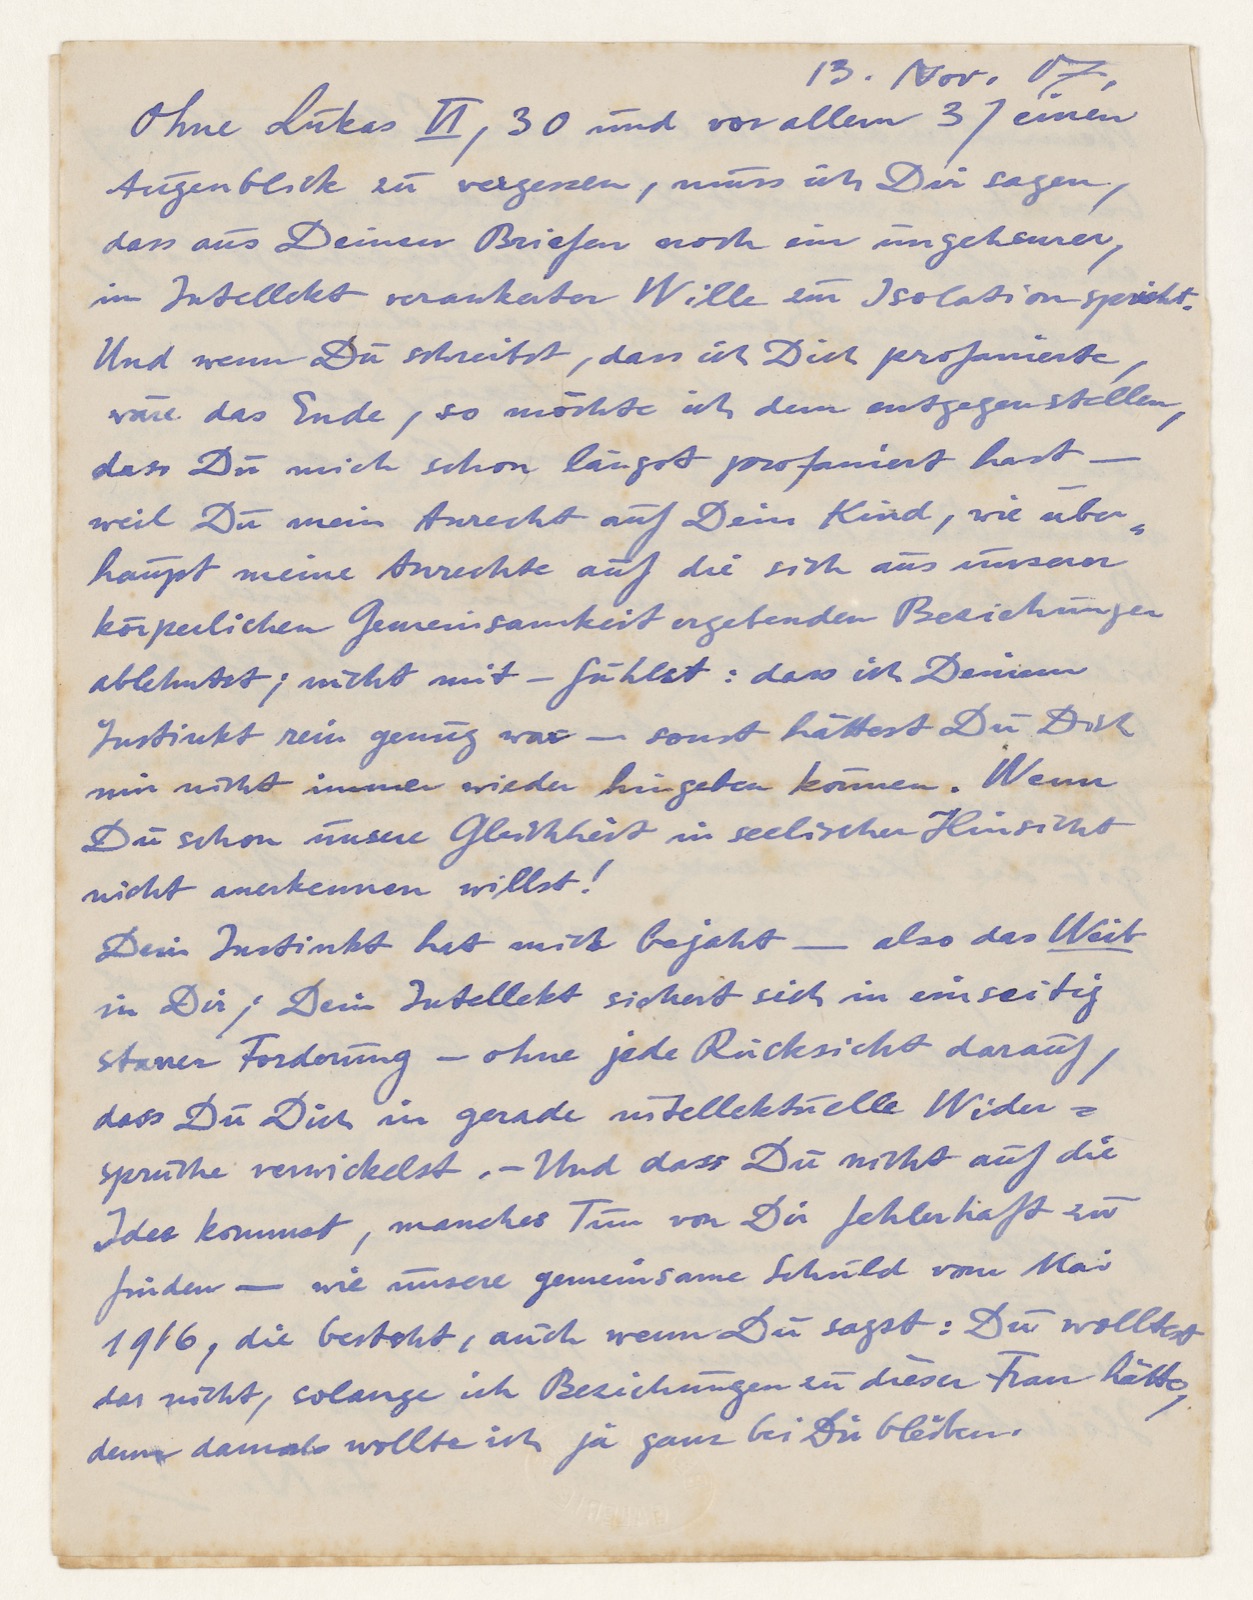 13. Nov. 17.
Ohne Lukas VI, 30 und vor allem 37 einen
Augenblick zu vergessen, muss ich Dir sagen,
dass aus Deinen Briefen noch ein ungeheurer,
im Intellekt verankerter Wille zur Isolation spricht.
Und wenn Du schreibst, dass ich Dich profanierte,
wäre das Ende, so möchte ich dem entgegenstellen,
dass Du mich schon längst profaniert hast —
weil Du mein Anrecht auf Dein Kind, wie über=
haupt meine Anrechte auf die sich aus unserer
körperlichen Gemeinsamkeit ergebenden Beziehungen
ablehntest; nicht mit-fühlst: dass ich Deinem
Instinkt rein genug war — sonst hättest Du Dich
mir nicht immer wieder hingeben können. Wenn
Du schon unsere Gleichheit in seelischer Hinsicht
nicht anerkennen willst!
Dein Instinkt hat mich bejaht — also das Weib
in Dir; Dein Intellekt sichert sich in einseitig
starrer Forderung – ohne jede Rücksicht darauf,
dass Du Dich in gerade intellektuelle Wider=
sprüche verwickelst. – Und dass Du nicht auf die
Idee kommst, manches Tun von Dir fehlerhaft zu
finden — wie unsere gemeinsame Schuld vom Mai
1916, die besteht, auch wenn Du sagst: Du wolltest
das nicht, solange ich Beziehungen zu dieser Frau hätte,
denn damals wollte ich ja ganz bei Dir bleiben.